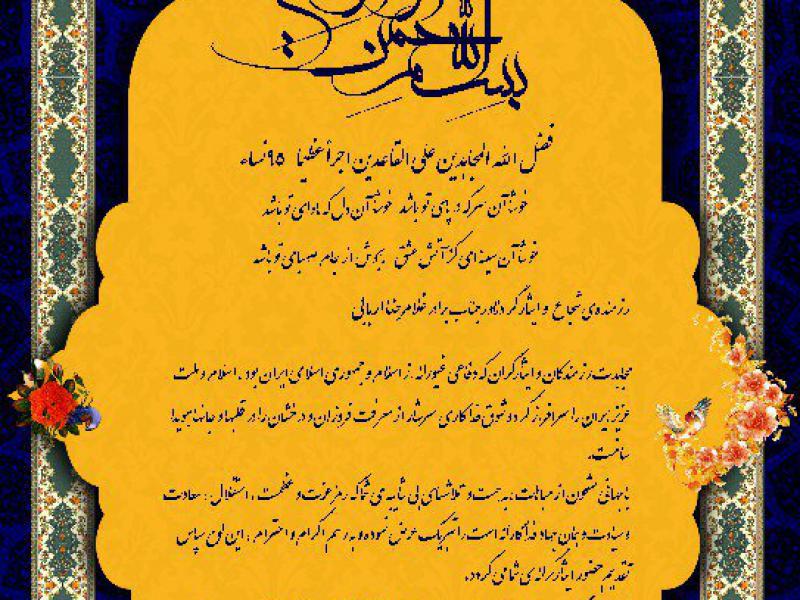 بسم الله الرحمن الرحیم
فضل الله المجاهدین علی القاعدین اجرأ عظیما ۹۵ نساء
خوشا آن سر که در پای تو باشد خوشا آن دل که ماوای تو باشد
خوشا آن سینه ای کز آتش عشق بجوش از جام صهبای تو باشد
رزمنده ی شجاع و ایثارگر دلاور جناب برادر غلامرضا اربابی
مجاهدت رزمندگان و ایثارگران که دفاعی غیورانه از اسلام و جمهوری اسلامی ایران بود ، اسلام و ملت
عزیز ایران را سرافراز کرد و شوق فداکاری سرشار از معرفت فروزان و درخشان را در قلبها و جانها هویدا
ساخت.
با جهانی مشحون از مباهات ، به همت و تلاشهای بی شائبه ی شما که رمز عزت و عظمت ، استقلال ، سعادت
و سیادت و همان جهاد فداکارانه است را تبریک عرض نموده و به رسم اکرام و احترام ، این لوح سپاس
تقدیم حضور ایثارگرانه ی شما می گردد.